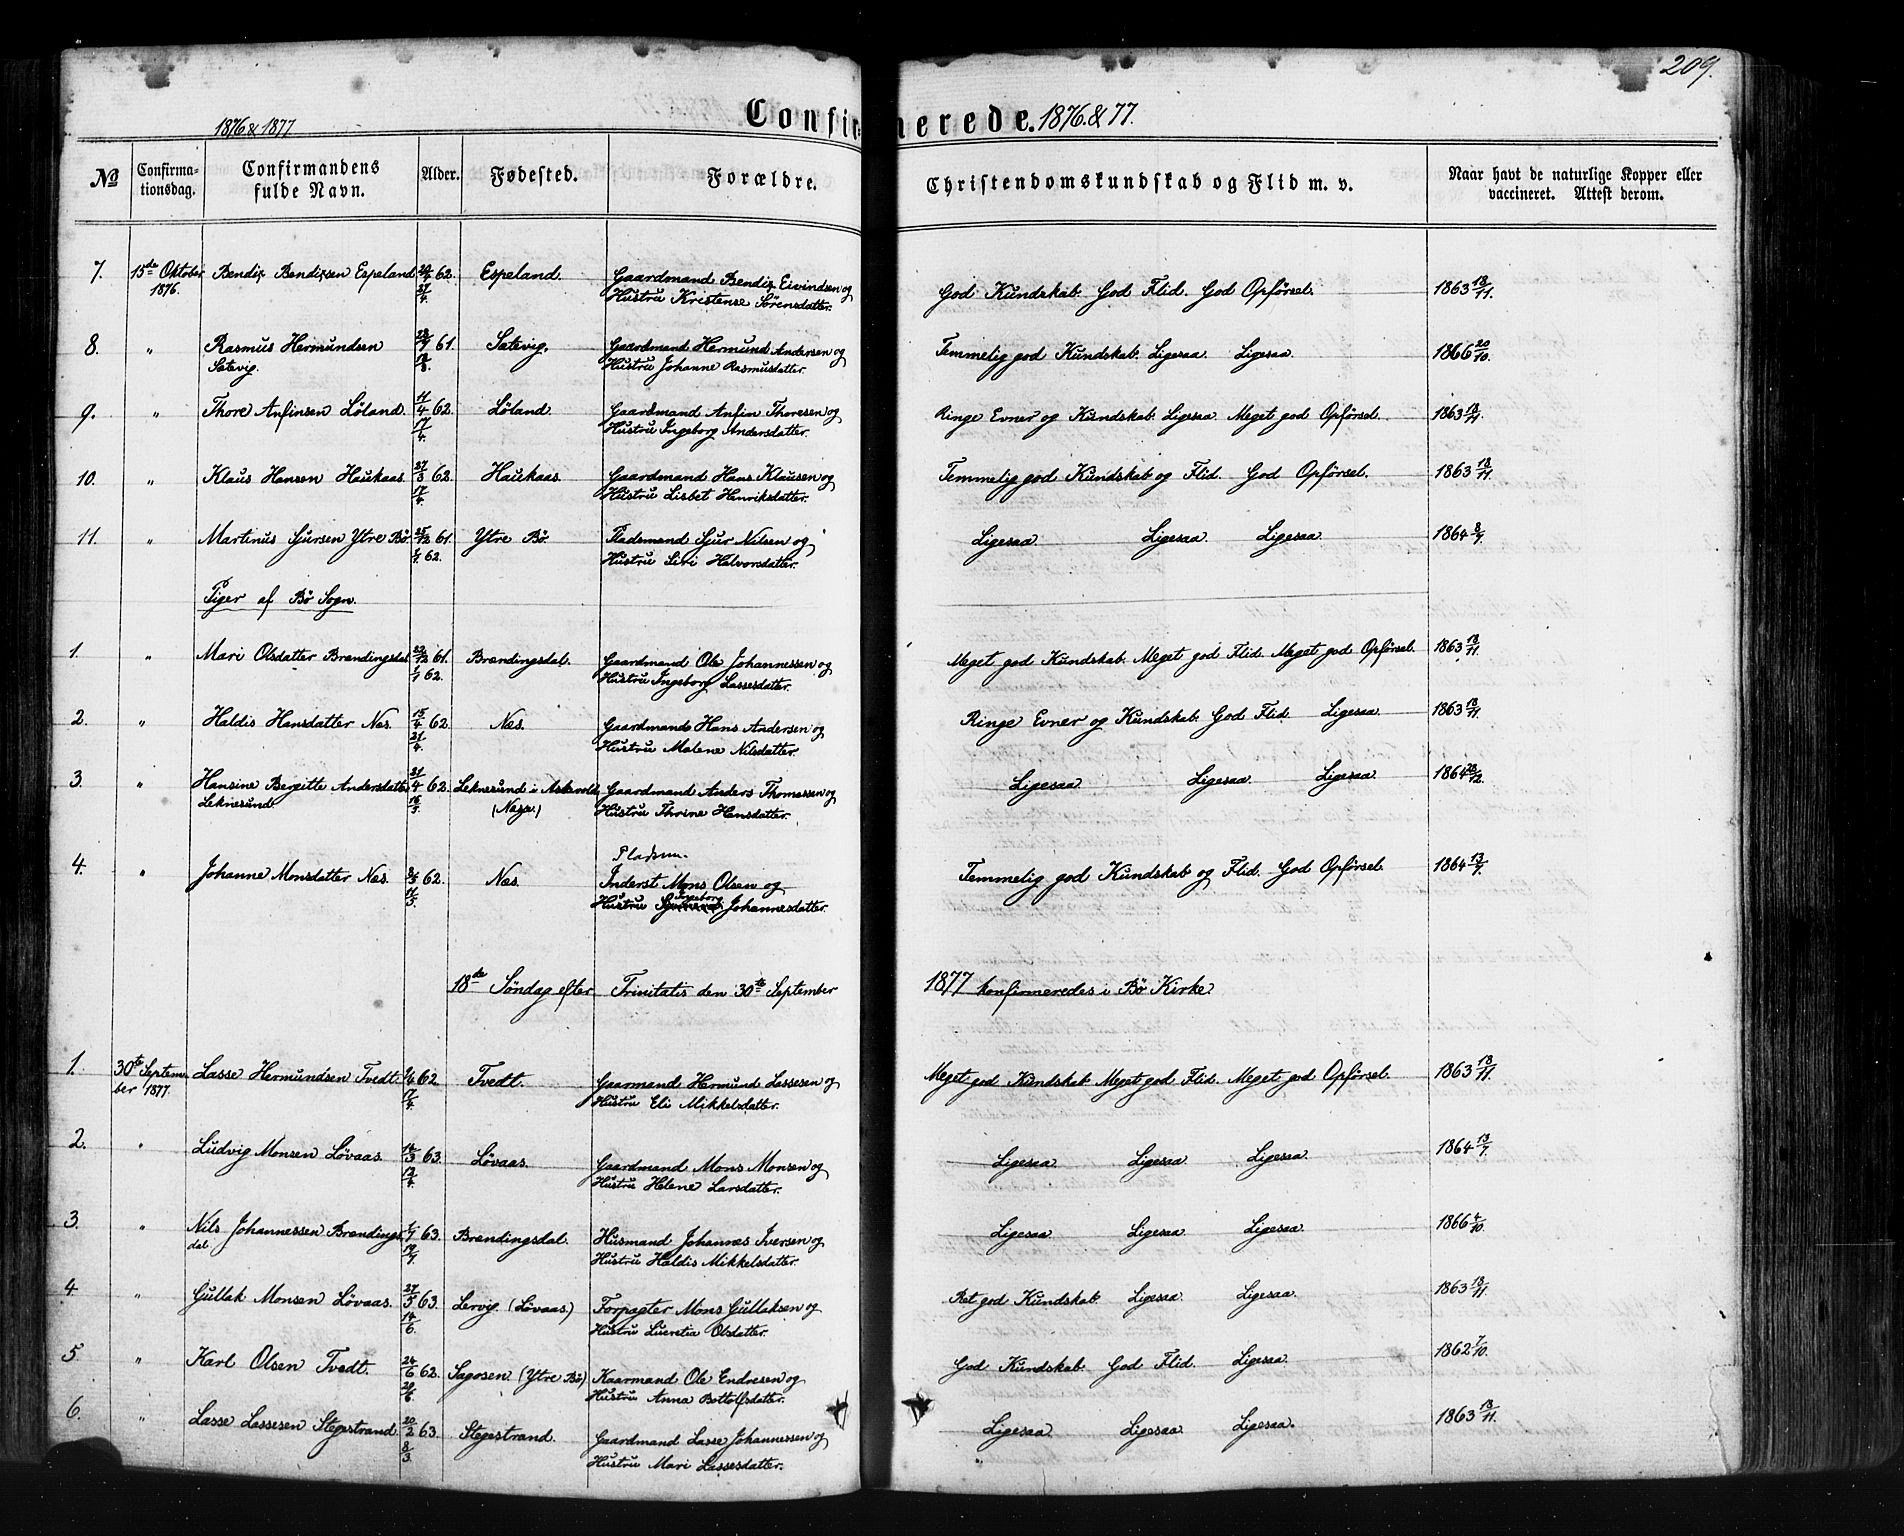 209.
1876 & 1877
Confirmerede. 1876. & 77.
No
Confirmationsdag.
Confirmandens fulde Navn.
Alder.
Fødested.
Forældre.
Christendomskundskab og Flid m. v.
Naar havt de naturlige Kopper eller vaccineret. Attest derom.
7. 15de Oktober 1876. Bendix Bendixsen Espeland 62. 27/4. Espeland. Gaardmand Bendix Eivindsen og Hustru Kristense Sörensdatter. God Kundskab. God Flid. God Opførsel. 1863 13/11.
8. " Rasmus Hermundsen Satevig. 61. Satevig. Gaardmand Hermund Andersen og Hustru Johanne Rasmusdatter. Temmelig god Kundskab. Ligesaa. Ligesaa. 1866 20/10.
9. " Thore Anfinsen Löland. 11/4 62. 17/4. Löland. Gaardmand Anfin Thoresen og Hustru Ingeborg Andersdatter. Ringe Evner og Kundskab. Ligesaa. Meget god Opførsel. 1863 13/11.
10. " Klaus Hansen Haukaas. 27/3 62. 17/4. Haukaas. Gaardmand Hans Klausen og Hustru Lisbet Henriksdatter. Temmelig god Kundskab og Flid. God Opførsel. 1863 13/11.
11. " Martinus Sjursen Ytre Bö. 25/12 61. 62. Ytre Bö. Pladsmand Sjur Nilsen og Hustru Siri Halvorsdatter. Ligesaa Ligesaa Ligesaa 1864 8/7.
Piger af Bö Sogn.
1. " Mari Olsdatter Brændingsdal 22/12 61. 1/1 62. Brændingsdal. Gaardmand Ole Johannessen og Hustru Ingeborg Lassesdatter. Meget god Kundskab. Meget god Flid. Meget god Opførsel. 1863 13/11.
2. " Haldis Hansdatter Nes. 15/4 62. 21/4. Nes. Gaardmand Hans Andersen og Hustru Malene Nilsdatter. Ringe Evner og Kundskab. God Flid. Ligesaa. 1863 13/11.
3. " Hansine Bergitte Andersdatter Leknesund. 21/4 62. Leknesund i Askevold (Nesje) Gaardmand Anders Thomassen og Hustru Thrine Hansdatter. Ligesaa Ligesaa. Ligesaa 1864
4. " Johanne Monsdatter Nes. 62. 11/5. Nes. Pladsm. Inderst Mons Olsen og Hustru Ingeborg Johannesdatter. Temmelig god Kundskab og Flid. God Opførsel. 1864 13/7.
18de Söndag efter Trinitatis den 30te September 1877 konfirmeredes i Bö Kirke
1. 30te September 1877. Lasse Hermundsen Tvedt. 62 Tvedt. Gaarmand Hermund Lassesen og Hustru Eli Mikkelsdatter. Meget god Kundskab Meget god Flid. Meget god Opførsel. 1863 13/11.
2. " Ludvig Monsen Lövaas. 14/3 63. 12/4. Lövaas. Gaardmand Mons Monsen og Hustru Helene Larsdatter. Ligesaa Ligesaa Ligesaa. 1864 13/7.
3. " Nils Johannessen Brændingsdal 63. 19/7. Brændingsdal. Husmand Johannes Iversen og Hustru Haldis Mikkelsdatter. Ligesaa Ligesaa Ligesaa. 1866 4/10.
4 " Gullak Monsen Lövaas. 27/5 63. 14/6. Lervig. (Lövaas.) Forpagter Mons Gullaksen og Hustru Lucretia Olsdatter. Ret god Kundskab. Ligesaa. Ligesaa. 1863 13/11.
5. " Karl Olsen Tvedt. 24/6 62. Sagosen (Ytre Bö) Kaarmand Ole Endresen og Hustru Anna Bottolfsdatter. God Kundskab. God Flid. Ligesaa. 1862 7/10.
6. " Lasse Lassesen Stegestrand. 20/2 63. 8/3. Stegestrand. Gaardmand Lasse Johannessen og Hustru Mari Lassesdatter. Ligesaa. Ligesaa. Ligesaa. 1863 13/11.